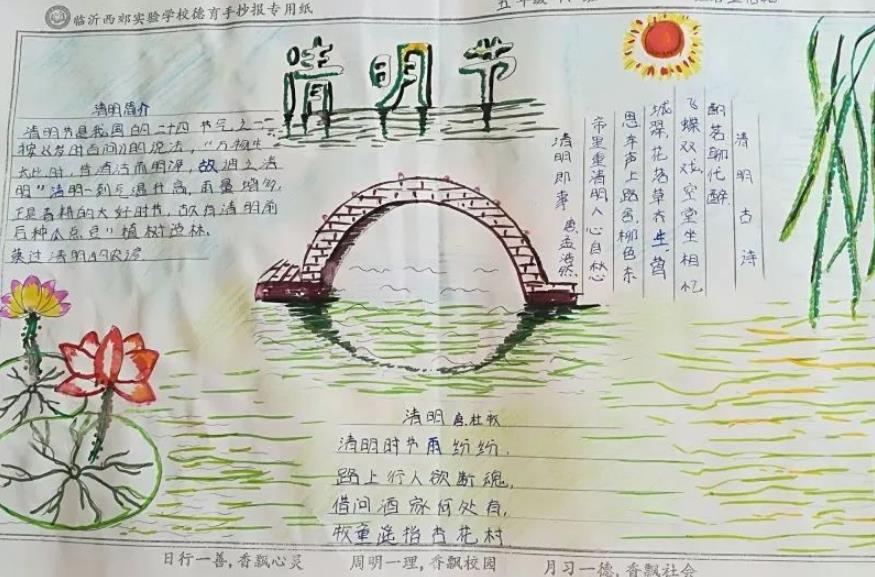 临沂西郊实验学校德育手抄报专用纸
清明节
清明简介
清明节是我国的二十四节气之一
按《岁时百问》的说法,"万物生
长此时,皆清洁而明净,故谓之清
明"清明一到气温升高,雨量增多,
正是春耕的大好时节,故有清明前
后种瓜点豆"植树造林,
莫过清明的农谚.
清明古诗
清明即事 唐孟浩然
帝里重清明人心自愁
思车声上路合,柳色东
城翠.花落草齐生,莺
飞蝶双戏,空堂坐相忆
酌茗聊代醉.
清明 唐.杜牧
清明时节雨纷纷,
路上行人欲断魂,
借问酒家何处有,
牧童遥指杏花村
日行一善,香飘心灵 周明一理,香飘校园 月习一德,香飘社会